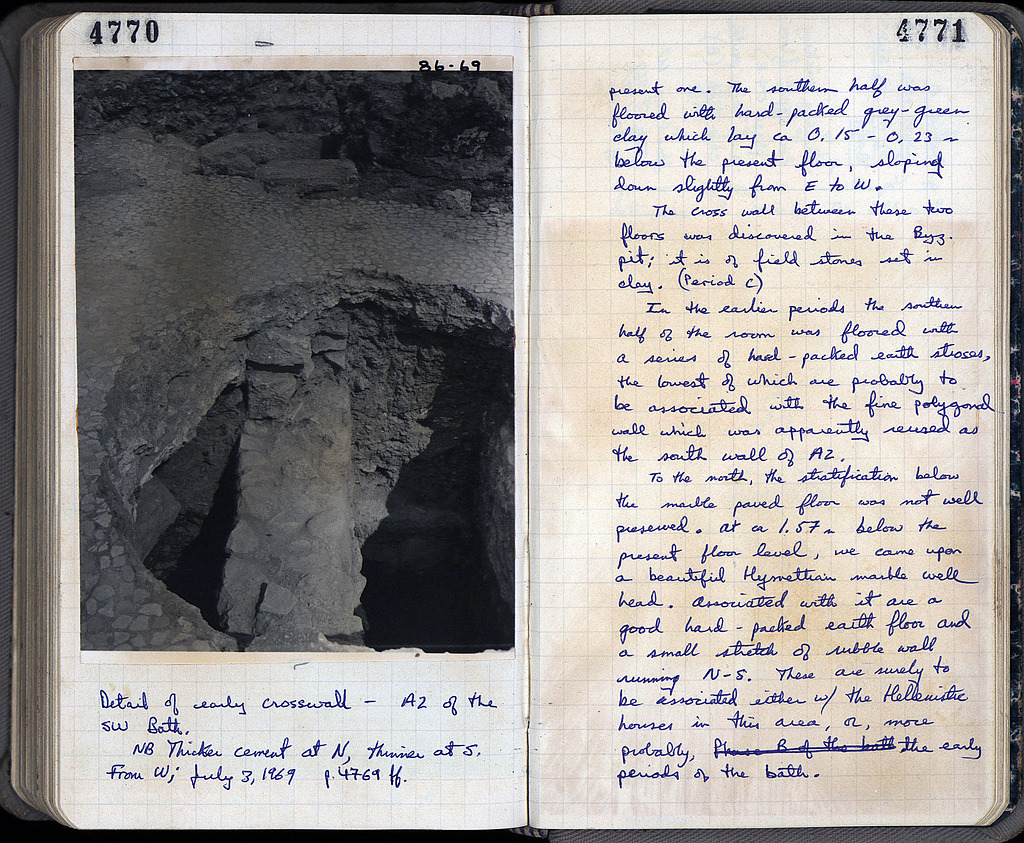 4770
86-69
Detail of early crosswall - A2 of the
SW Bath.
NB Thicker cement at N, thinner at S.
From W; July 3, 1969 p. 4769 ff.
4771
present one. The southern half was
floored with hard-packed grey-green
clay which lay ca 0.15 - 0.23 m
below the present floor, sloping
down slightly from E to W.
The cross wall between these two
floors was discovered in the Byz.
pit; it is of field stones set in
clay. (Period C)
In the earlier periods the southern
half of the room was floored with
a series of hard-packed earth stroses,
the lowest of which are probably to
be associated with the fine polygonal
wall which was apparently reused as
the south wall of A2.
To the north, the stratification below
the marble paved floor was not well
preserved. At ca 1.57 m below the
present floor level, we came upon
a beautiful Hymettian marble well
head. Associated with it are a
good hard-packed earth floor and
a small stretch of rubble wall
running N-S. These are surely to
be associated either w/ the Hellenistic
houses in this area, or, more
probably, Phase B of the bath the early
periods of the bath.